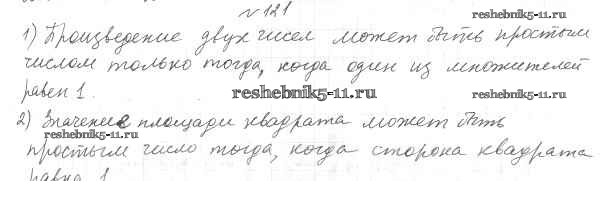 № 121
reshebnik5-11.ru
1) Произведение двух чисел может быть простым
числом только тогда, когда один из множителей
равен 1.
reshebnik5-11.ru
2) Значение площади квадрата может быть
reshebnik5-11.ru
простым число тогда, когда сторона квадрата
равна 1